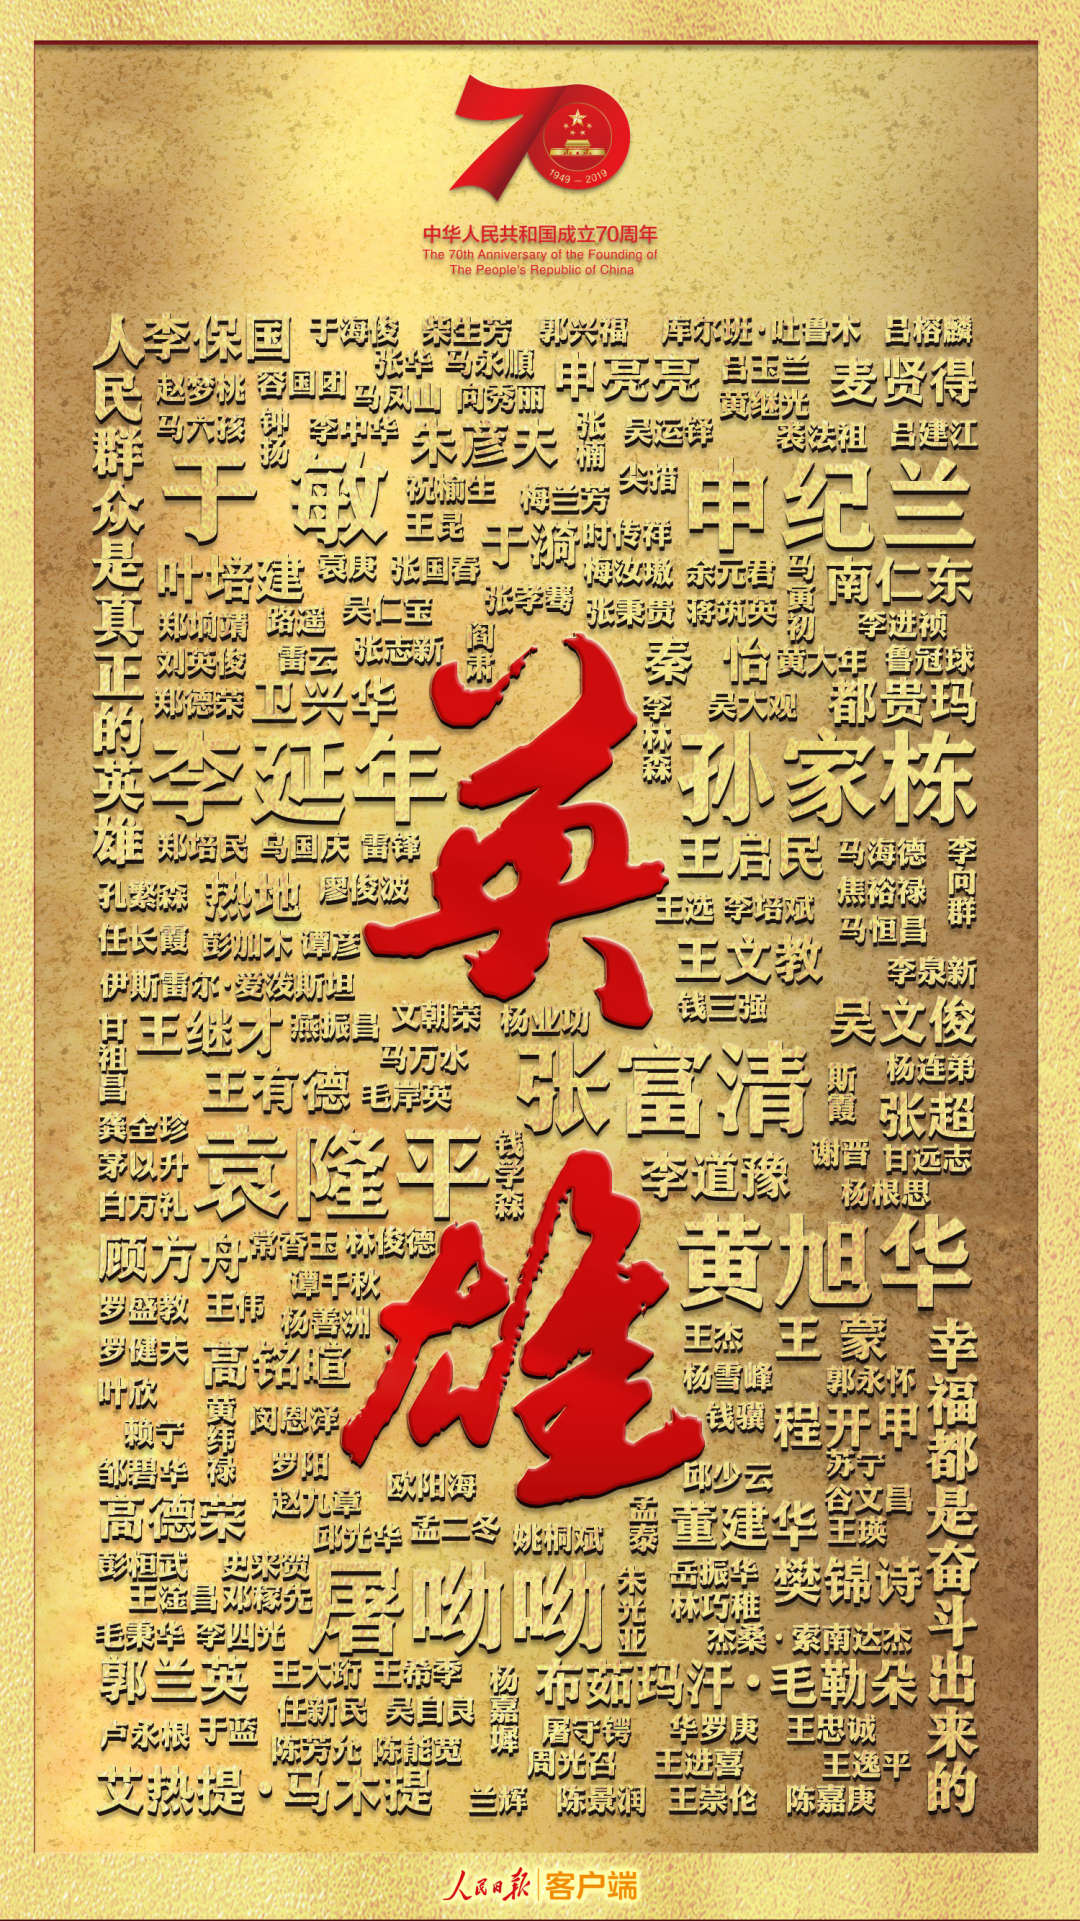 1949 – 2019
中华人民共和国成立70周年
The 70th Anniversary of the Founding of
The People's Republic of China
人民群众是真正的英雄
李保国 于海俊 柴生芳 郭兴福 库尔班·吐鲁木 吕榕麟
张华 马永順 申亮亮 吕玉兰 麦贤得
赵梦桃 容国团 马凤山 向秀丽 黄继光
马六孩 钟扬 李中华 朱彦夫 张楠 吴运铎 裘法祖 吕建江
于敏 祝榆生 梅兰芳 尖措 申纪兰
王昆 于漪 时传祥
叶培建 袁庚 张国春 梅汝璈 余元君 马寅初 南仁东
郑垧靖 路遥 吴仁宝 张孝骞 张秉贵 蒋筑英 李进祯
刘英俊 雷云 张志新 阎肃 秦怡 黄大年 鲁冠球
郑德荣 卫兴华 李林森 吴大观 都贵玛
李延年 孙家栋
郑培民 乌国庆 雷锋 王启民 马海德 李向群
孔繁森 热地 廖俊波 王选 李培斌 焦裕禄
任长霞 彭加木 谭彦 王文教 马恒昌
伊斯雷尔·爱泼斯坦 钱三强 李泉新
甘祖昌 王继才 燕振昌 文朝荣 杨业功 吴文俊
马万水 张富清 斯霞 杨连弟
王有德 毛岸英 张超
龚全珍 袁隆平 钱学森
茅以升 李道豫 谢晋 甘远志
白万礼 杨根思
顾方舟 常香玉 林俊德 黄旭华
谭千秋
罗盛教 王伟 杨善洲
英雄
罗健夫 高铭暄 王杰 王蒙
叶欣 黄纬禄 闵恩泽 杨雪峰 郭永怀
赖宁 钱骥 程开甲
邹碧华 罗阳 欧阳海 邱少云 苏宁
高德荣 赵九章 孟泰 董建华 谷文昌
邱光华 孟二冬 姚桐斌 王瑛
彭桓武 史来贺 屠呦呦 朱光亚 岳振华 樊锦诗
王淦昌 邓稼先 林巧稚
毛秉华 李四光 杰桑·索南达杰
郭兰英 王大珩 王希季 杨嘉墀 布茹玛汗·毛勒朵
任新民 吴自良
卢永根 于蓝 屠守锷 华罗庚 王忠诚
陈芳允 陈能宽 周光召 王进喜 王逸平
艾热提·马木提 兰辉 陈景润 王崇伦 陈嘉庚
幸福都是奋斗出来的
人民日报 客户端